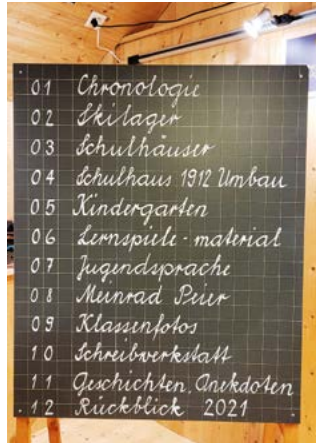 01 Chronologie
02 Skilager
03 Schulhäuser
04 Schulhaus 1912 Umbau
05 Kindergarten
06 Lernspiele - material
07 Jugendsprache
08 Meinrad Peier
09 Klassenfotos
10 Schreibwerkstatt
11 Geschichten, Anekdoten
12 Rückblick 2021